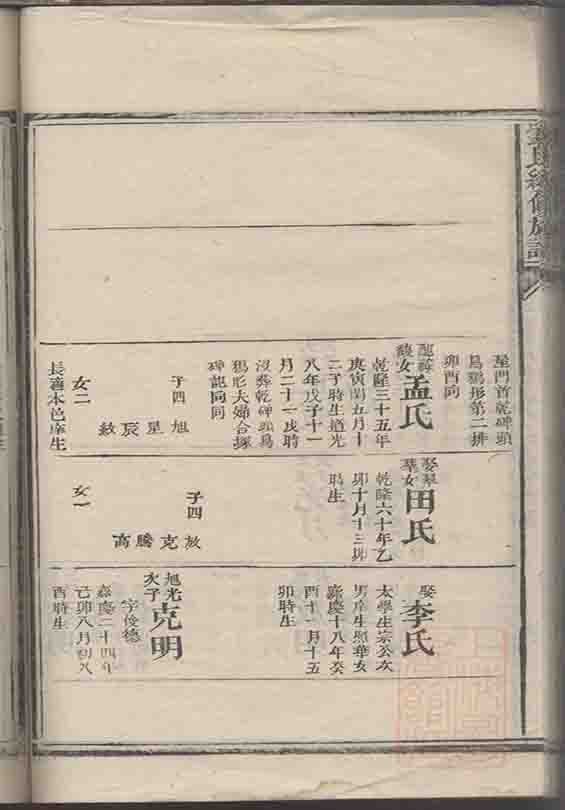 氏續修族譜
屋門首乾碑頭
烏鴉形第二排
卯酉同
孟氏
乾隆三十五年
庚寅閏五月十
二子時生道光
八年戊子十一
月二十一戌時
沒葬乾碑頭烏
鴉形夫婦合塚
碑記向同
子四
旭
星
辰
紋
女二
長適本邑庠生
娶翠
華女
田氏
乾隆六十年乙
卯十月十三
時生
子四
放
克
騰
高
女一
娶
李氏
太學生宗公次
男庠生照華女
嘉慶十八年癸
酉十一月十五
卯時生
旭光
次子
克明
字俊德
嘉慶二十四年
己卯八月初八
酉時生